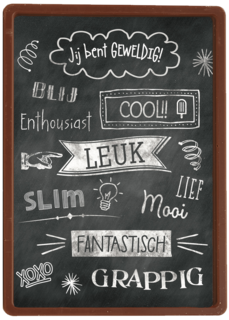 Jij bent GEWELDIG!
BLIJ
COOL!!
Enthousiast
LEUK
SLIM
LIEF
Mooi
FANTASTISCH
XOXO
GRAPPIG